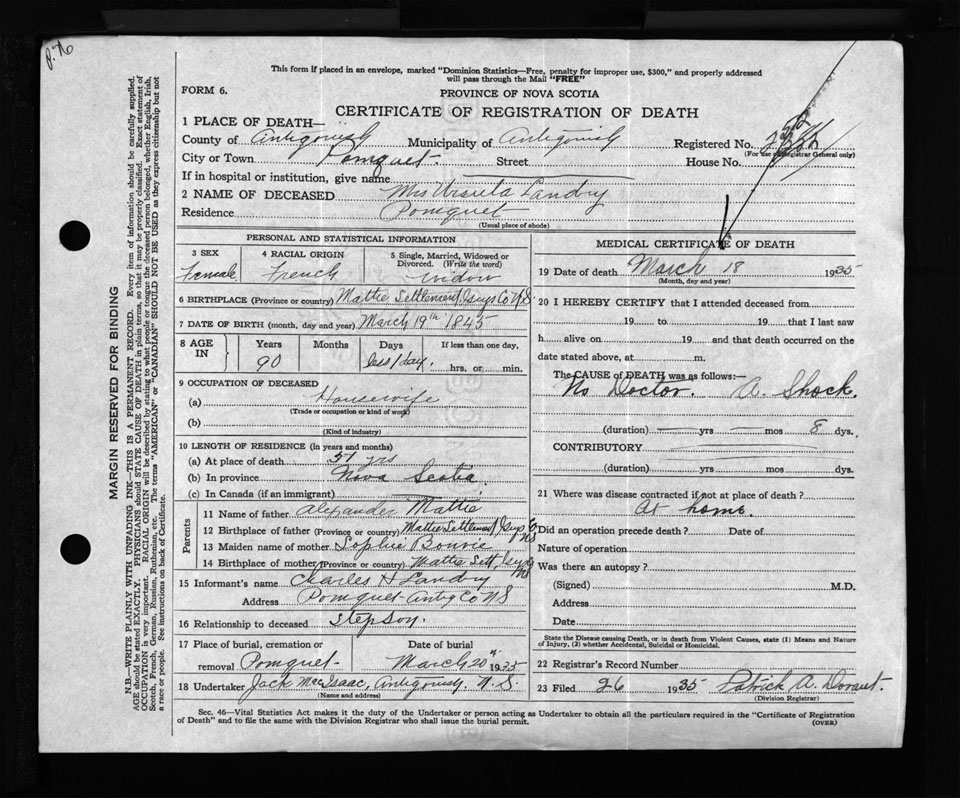 P. 76
This form if placed in an envelope, marked "Dominion Statistics—Free, penalty for improper use, $300," and properly addressed
will pass through the Mail "FREE"
FORM 6.
PROVINCE OF NOVA SCOTIA
CERTIFICATE OF REGISTRATION OF DEATH
1 PLACE OF DEATH—
County of Antigonish Municipality of Antigonish Registered No.
(For use of Registrar General only)
City or Town Pomquet. Street House No.
If in hospital or institution, give name
2 NAME OF DECEASED Mrs Ursula Landry
Residence Pomquet
(Usual place of abode)
PERSONAL AND STATISTICAL INFORMATION
3 SEX 4 RACIAL ORIGIN 5 Single, Married, Widowed or
Divorced. (Write the word)
Female French Widow
6 BIRTHPLACE (Province or country) Mattie Settlement Guys Co NS
7 DATE OF BIRTH (month, day and year) March 19th 1845
8 AGE IN Years Months Days If less than one day,
90 less 1 day. hrs. or min.
9 OCCUPATION OF DECEASED
(a) Housewife
(Trade or occupation or kind of work)
(b)
(Kind of industry)
10 LENGTH OF RESIDENCE (in years and months)
(a) At place of death 57 yrs
(b) In province Nova Scotia
(c) In Canada (if an immigrant)
Parents
11 Name of father Alexander Mattie
12 Birthplace of father (Province or country) Mattie Settlement Guys Co NS
13 Maiden name of mother Sophie Bouvie
14 Birthplace of mother (Province or country) Mattie Sett Guy Co NS
15 Informant's name Charles H Landry
Address Pomquet Antig Co NS
16 Relationship to deceased Stepson
17 Place of burial, cremation or Date of burial
removal Pomquet March 20 1935
18 Undertaker Jack McIsaac, Antigonish. N.S
(Name and address)
MEDICAL CERTIFICATE OF DEATH
19 Date of death March 18 1935
(Month, day and year)
20 I HEREBY CERTIFY that I attended deceased from
19 to 19 that I last saw
h alive on 19 and that death occurred on the
date stated above, at m.
The CAUSE of DEATH was as follows:—
No Doctor. A. Shock.
(duration) yrs mos 8 dys.
CONTRIBUTORY
(duration) yrs mos dys.
21 Where was disease contracted if not at place of death?
At home.
Did an operation precede death? Date of
Nature of operation
Was there an autopsy?
(Signed) M.D.
Address
Date
State the Disease causing Death, or in death from Violent Causes, state (1) Means and Nature
of Injury, (2) whether Accidental, Suicidal or Homicidal.
22 Registrar's Record Number
23 Filed 26 1935 Patrick A. Dorant.
(Division Registrar)
Sec. 46—Vital Statistics Act makes it the duty of the Undertaker or person acting as Undertaker to obtain all the particulars required in the "Certificate of Registration
of Death" and to file the same with the Division Registrar who shall issue the burial permit.
(OVER)
MARGIN RESERVED FOR BINDING
N.B.—WRITE PLAINLY WITH UNFADING INK—THIS IS A PERMANENT RECORD. Every item of information should be carefully supplied.
AGE should be stated EXACTLY. PHYSICIANS should STATE CAUSE OF DEATH in plain terms, so that it may be properly classified. Exact statement of
OCCUPATION is very important. RACIAL ORIGIN will be described by stating to what people or tongue the deceased person belonged, whether English, Irish,
Scotch, French, German, Russian, Ruthenian, etc. The terms "AMERICAN" or "CANADIAN" SHOULD NOT BE USED as they express citizenship but not
a race or people. See instructions on back of Certificate.